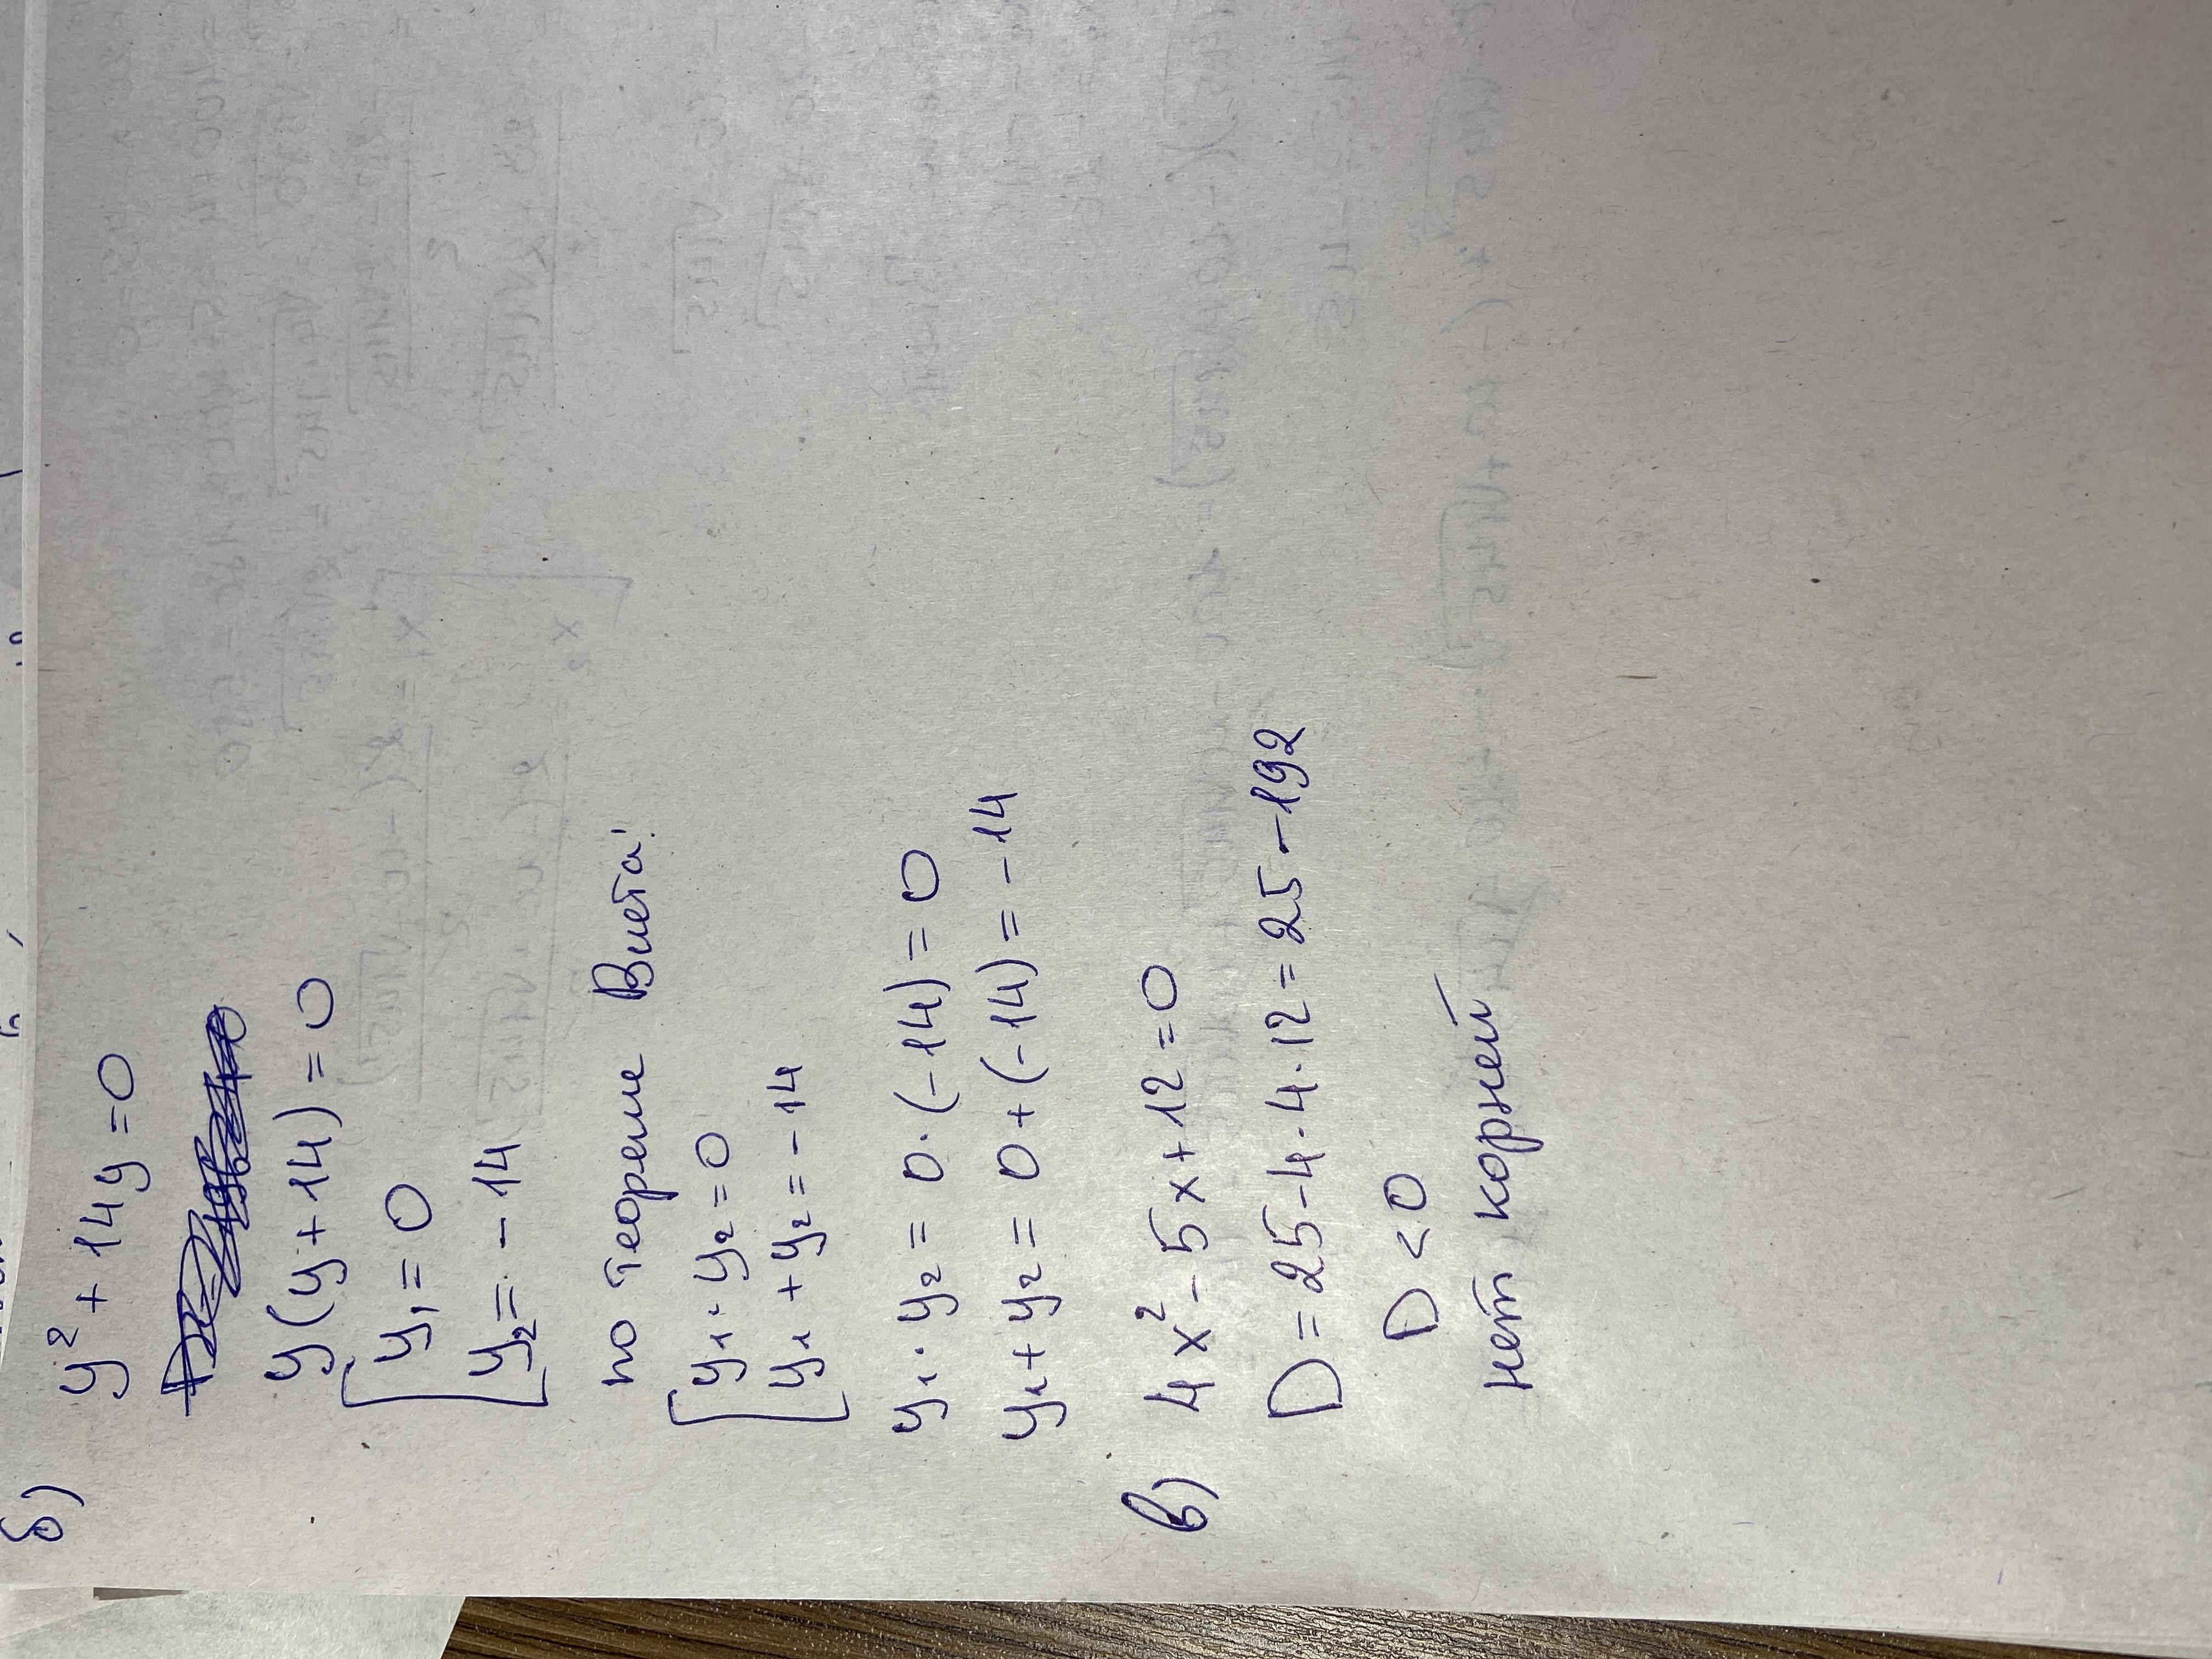 б) y² + 14y = 0
y(y+14) = 0
y₁ = 0
y₂ = -14
по теореме Виета:
y₁ · y₂ = 0
y₁ + y₂ = -14
y₁ · y₂ = 0 · (-14) = 0
y₁ + y₂ = 0 + (-14) = -14
в) 4x² - 5x + 12 = 0
D = 25 - 4 · 4 · 12 = 25 - 192
D < 0
нет корней